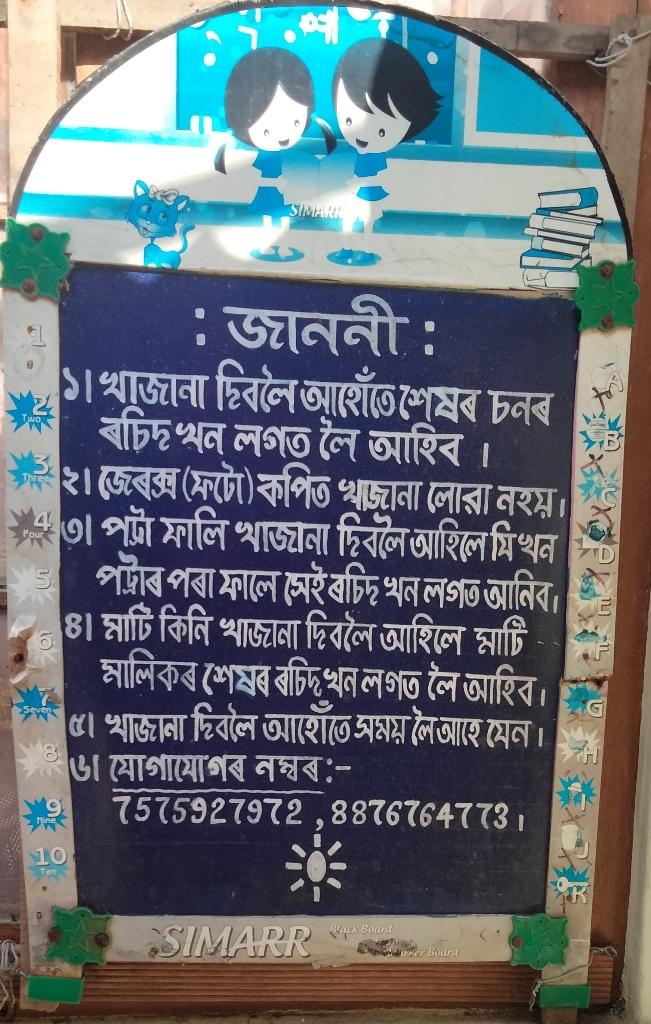 SIMARR
: জাননী :
১৷ খাজানা দিবলৈ আহোঁতে শেষৰ চনৰ
ৰচিদ খন লগত লৈ আহিব ।
২৷ জেৰক্স (ফটো) কপিত খাজানা লোৱা নহয়।
৩৷ পট্টা ফালি খাজানা দিবলৈ আহিলে যি খন
পট্টাৰ পৰা ফালে সেই ৰচিদ খন লগত আনিব।
৪৷ মাটি কিনি খাজানা দিবলৈ আহিলে মাটি
মালিকৰ শেষৰ ৰচিদ খন লগত লৈ আহিব।
৫৷ খাজানা দিবলৈ আহোঁতে সময় লৈ আহে যেন।
৬৷ যোগাযোগৰ নম্বৰ:-
7575927972 , 8876764773।
1
2
Two
3
Three
4
Four
5
6
7
Seven
8
9
Nine
10
Ten
A
B
C
D
E
F
G
H
I
J
K
SIMARR
Black Board
Marker Board